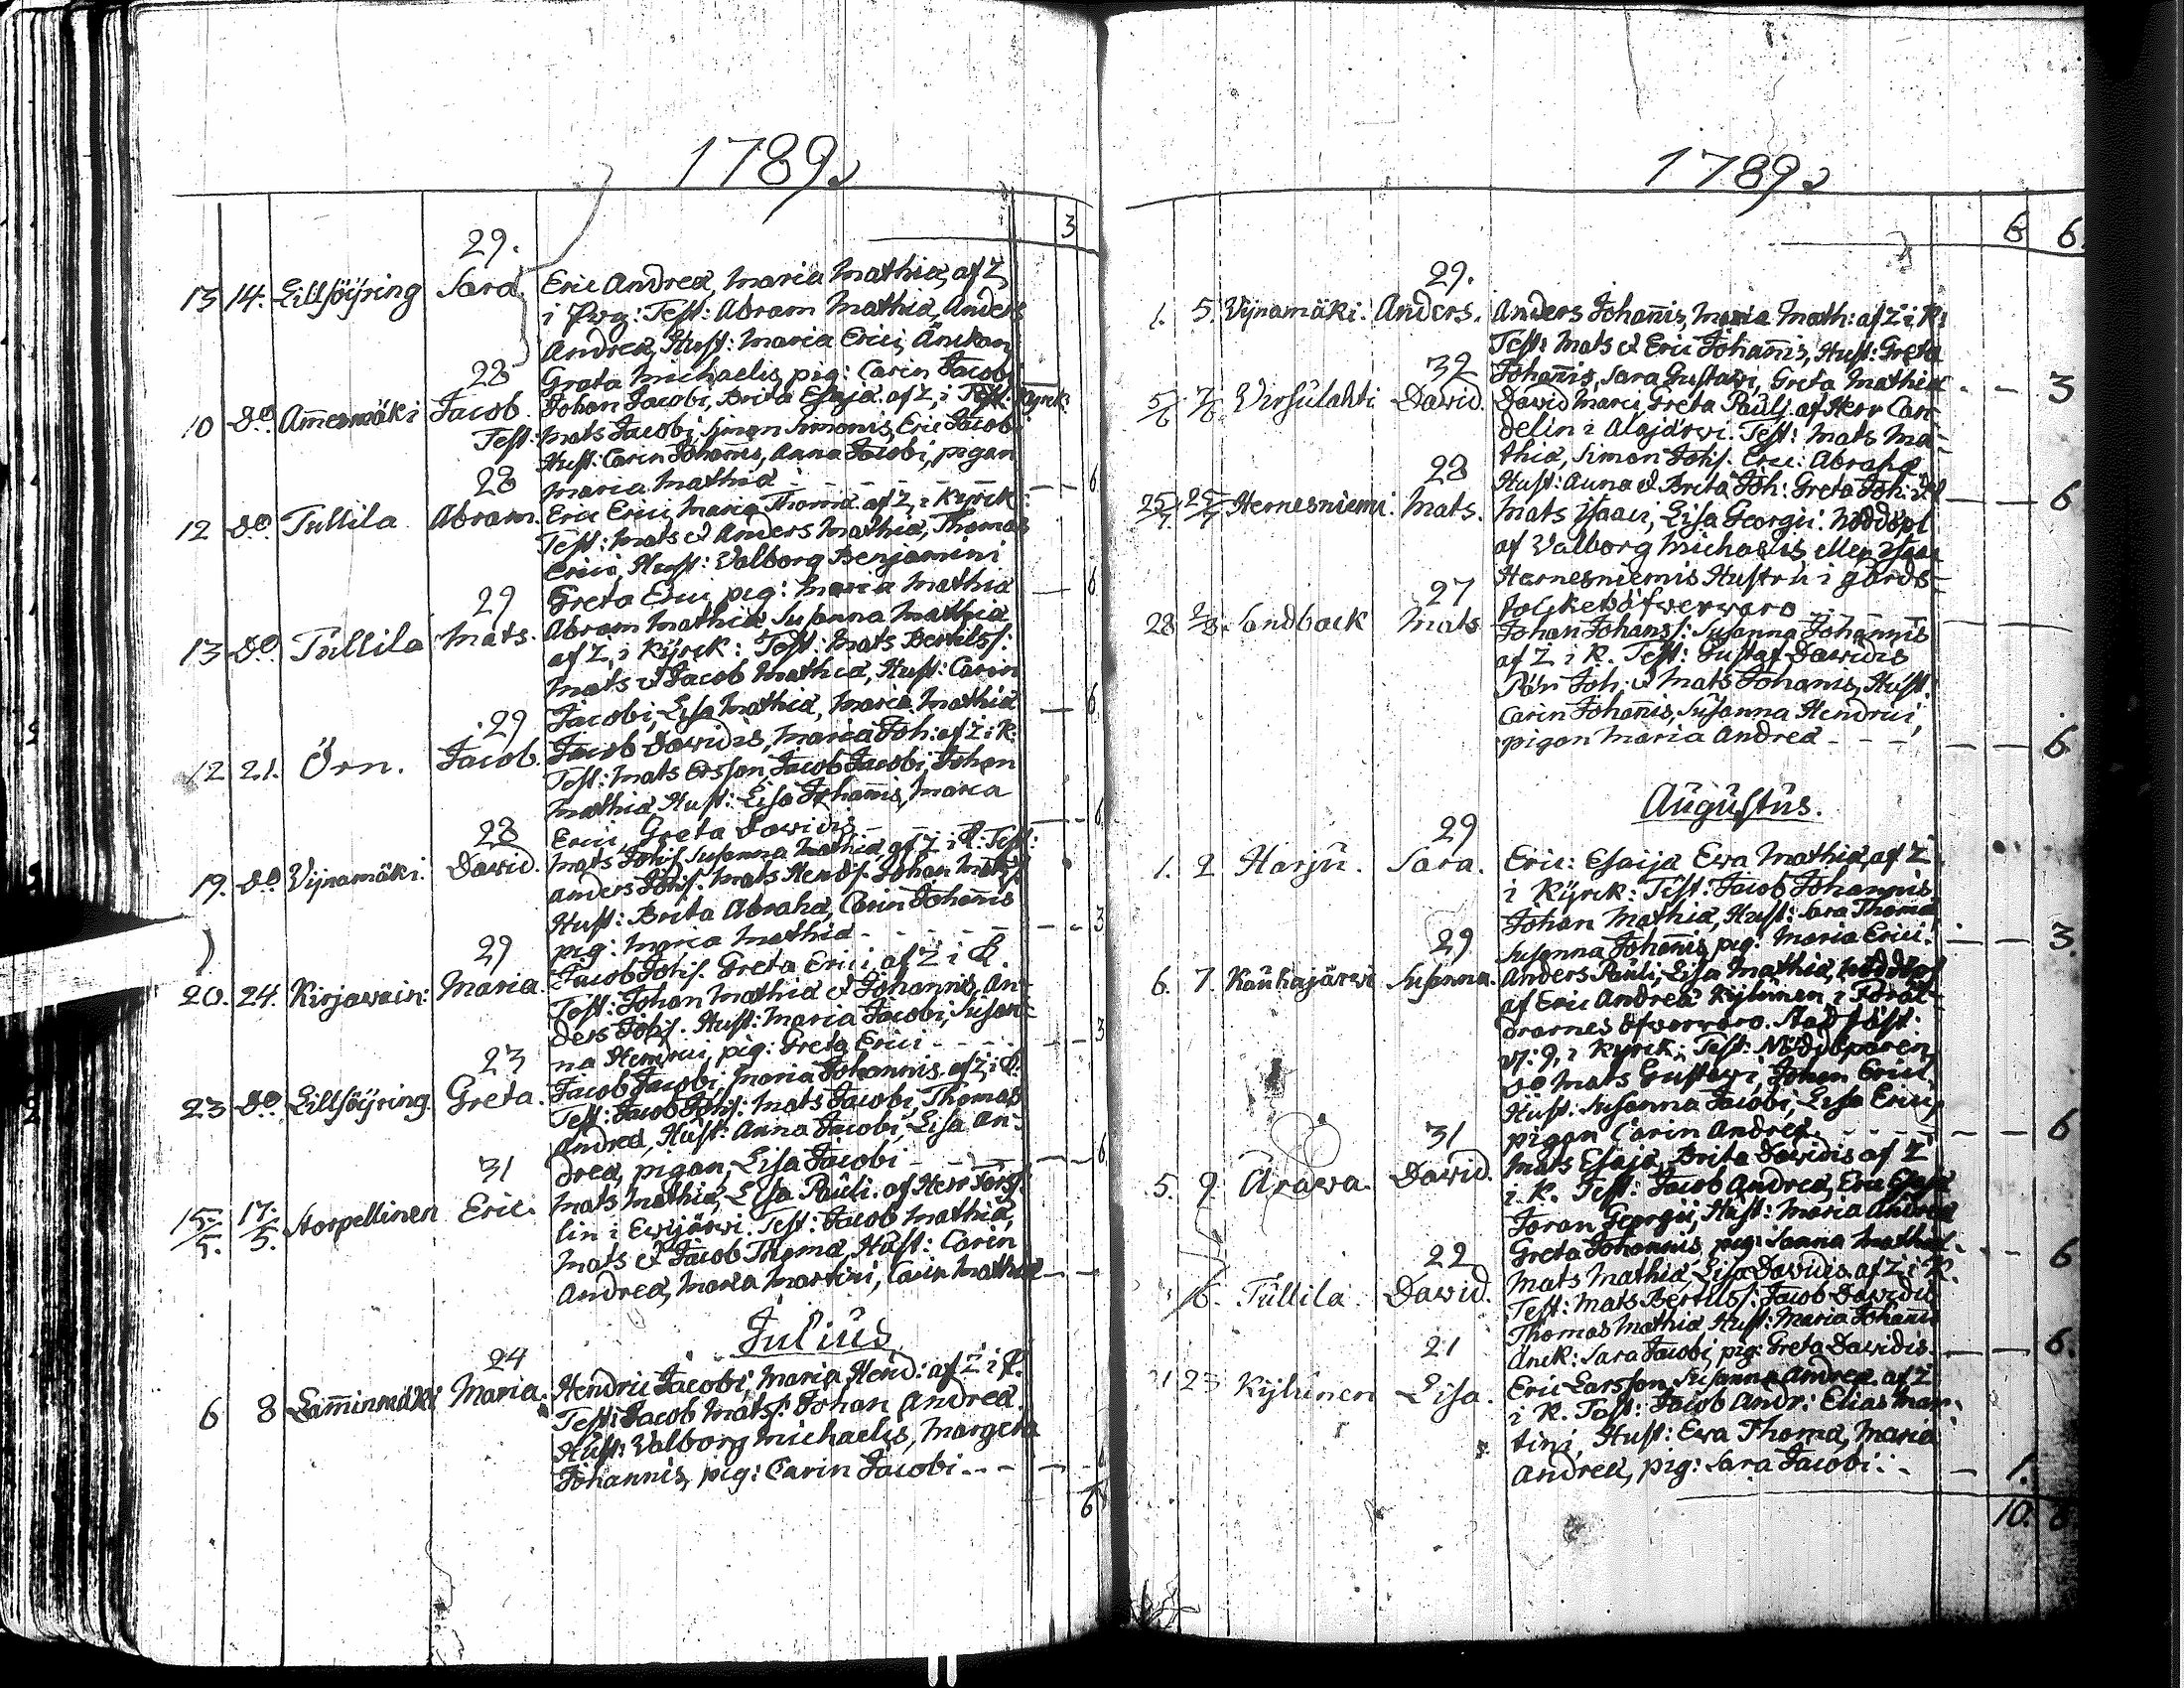 1789.
3
29.
13 14. Lillsöÿring Sara. Eric Andreæ, Maria Mathiæ, af Z
i Prg: Test: Abram Mathiæ, Anders
Andreæ, Hust: Maria Erici, Änckan
28 Greta Michaelis, pig: Carin Jacobi
10 do. Ammesmäki Jacob Johan Jacobi, Brita Esajæ. af Z, i Kyrck:
Test: Mats Jacobi, Simon Simonis, Eric Jacobi
Hust: Carin Johannis, Anna Jacobi, pigan
28 Maria Mathiæ - - - 6
12 do. Tullila Abram. Eric Erici, Maria Thomæ. af Z, i Kyrck:
Test: Mats & Anders Mathiæ, Thomas
Erici, Hust: Valborg Benjamini
29 Greta Erici pig: Maria Mathiæ — 6
13 do. Tullila Mats. Abram Mathiæ Susanna Mathiæ
af Z, i Kyrck: Test: Mats Bertilss:
Mats & Jacob Mathiæ, Hust: Carin
29 Jacobi, Lisa Mathiæ, Maria Mathiæ — 6
12 21. Örn. Jacob. Jacob Davidis, Maria Joh: af Z i K:
Test: Mats Ersson, Jacob Jacobi, Johan
Mathiæ Hust: Lisa Johannis, Maria
28 Erici, Greta Davidis - - 6
19. do Vijnamäki: David. Mats Johs. Susanna Mathiæ, af Z i K: Test:
Anders Johs. Mats Hends. Johan Matss
Hust: Brita Abrahæ, Carin Johannis
29 pig: Maria Mathiæ - - - 3
20. 24. Kirjawain: Maria. Jacob Johs. Greta Erici af Z i K.
Test: Johan Mathiæ & Johannis, An-
ders Johs. Hust: Maria Jacobi, Susan-
23 na Henrici, pig: Greta Erici - - - 3
23 do Lillsöÿring. Greta. Jacob Jacobi, Maria Johannis. af Z, i K:
Test: Jacob Johs: Mats Jacobi, Thomas
Andreæ, Hust: Anna Jacobi, Lisa An-
31 dreæ, pigan, Lisa Jacobi - - 6
15/5. 17./5. Storpellinen Eric. Mats Mathiæ, Lisa Pauli. af Herr Forss-
lin i Ewijärwi. Test: Jacob Mathiæ,
Mats & Jacob Thomæ, Hust: Carin
Andreæ, Maria Martini, Carin Mathiæ — —
Julius
24
6 8 Lamminmäki Maria. Hendric Jacobi, Maria Hend: af Z i K.
Test: Jacob Mats: Johan Andreæ.
Hust: Valborg Michaelis, Margeta
Johannis, pig: Carin Jacobi - - — —
6
1789.
6 6.
29.
1. 5. Vijnamäki. Anders. Anders Johannis, Maria Math: af Z i K:
Test: Mats & Eric Johannis, Hust: Greta
32 Johannis, Sara Gustavi, Greta Mathiæ - — 3
5/6 7/6. Virsulahti David. David Marci, Greta Pauli. af Herr Can-
delin i Alajärwi. Test: Mats Ma-
thiæ, Simon Johs. Eric: Abrahæ
28 Hust: Anna & Brita Joh: Greta Joh: — — 6
25/7. Hernesniemi. Mats. Mats Isaaci, Lisa Georgii. Nöddöpt
af Valborg Michaelis eller Isaac
Hernesniemis Hustru i gårds-
27 folckets öfwerwaro - - - —
28 2/8. Sandback Mats Johan Johans: Susanna Johannis
af Z i K. Test: Gustaf Davidis
Pär Joh: & Mats Johannis, Hust:
Carin Johannis, Susanna Hendrici,
pigan Maria Andreæ - - - — — 6
Augustus.
29
1. 2 Harju. Sara. Eric: Esaijæ Ewa Mathiæ, af Z
i Kyrck: Test: Jacob Johannis
Johan Mathiæ, Hust: Sara Thomæ
29 Susanna Johannis, pig: Maria Erici. — — 3.
6. 7. Kauhajärwi Susanna. Anders Pauli, Lisa Mathiæ, nöddöpt
af Eric Andreæ Kylinen i Föräl-
drarnes öfwerwaro. Stadfäst:
d: 9, i Kyrck: Test: Nöddöparen
do Mats Gustavi, Johan Erici
Hust: Susanna Jacobi, Lisa Erici,
31 pigan Carin Andreæ. - - - — — 6
5. 9 Arawa. David. Mats Esajæ, Brita Davidis af Z
i K. Test: Jacob Andreæ, Eric Esajæ
Joran Georgii, Hust: Maria Andreæ
22 Greta Johannis pig: Sanna Mathiæ - - 6
16. Tullila. David. Mats Mathiæ, Lisa Davidis af Z i K.
Test: Mats Bertilss: Jacob Davidis
Thomas Mathiæ Hust: Maria Johannis
21 Anck: Sara Jacobi, pig: Greta Davidis. — — 6.
21 23 Kylinen Lisa. Eric Larsson, Susanna Andreæ. af Z
i K. Test: Jacob Andr: Elias Mar-
tini, Hust: Ewa Thomæ, Maria
Andreæ, pig: Sara Jacobi: - — 1.
10. 6